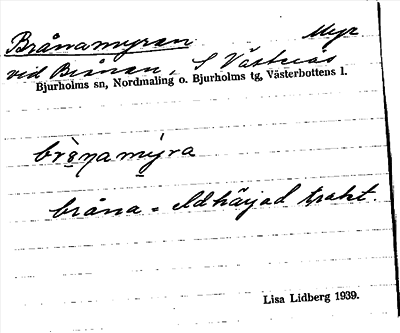 Brånamyran Myr
vid Brånan, S Västerås
Bjurholms sn, Nordmaling o. Bjurholms tg, Västerbottens l.
brɷ̀ŋamýra
bråna = eldhärjad trakt.
Lisa Lidberg 1939.